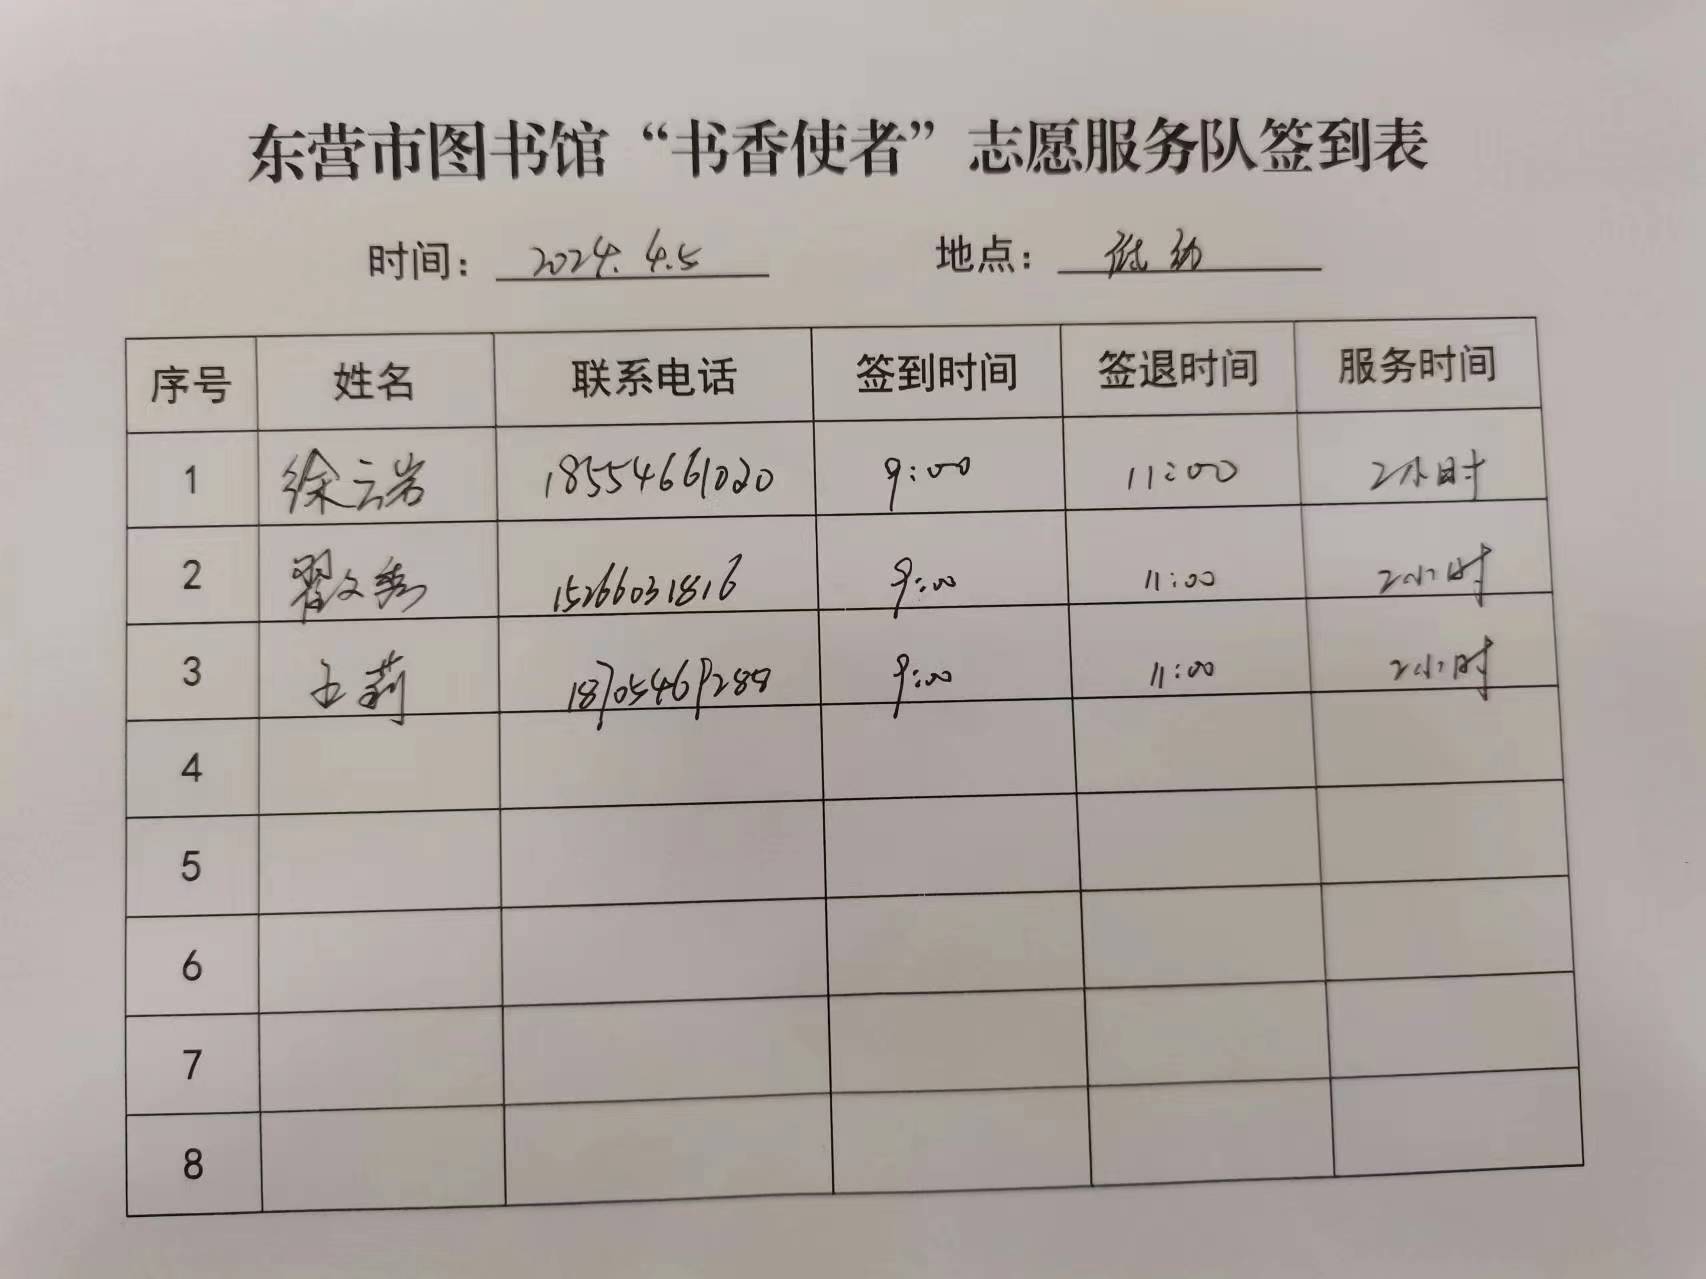 东营市图书馆“书香使者”志愿服务队签到表
时间： 2024.4.5 地点： 低幼
序号 姓名 联系电话 签到时间 签退时间 服务时间
1 徐云岩 18554661020 9:00 11:00 2小时
2 翟文秀 15266031816 9:00 11:00 2小时
3 王莉 18705469288 9:00 11:00 2小时
4
5
6
7
8